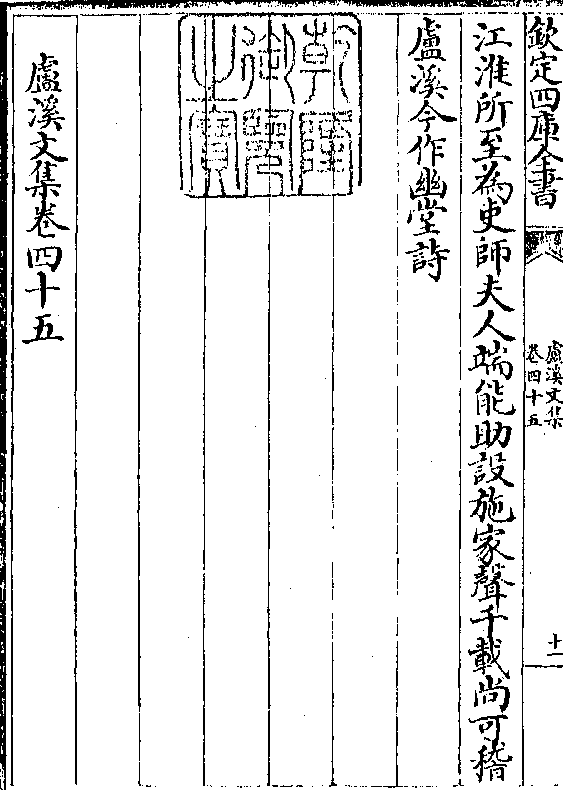 欽定四庫全書
盧溪文集
卷四十五
十一
江淮所至為吏師夫人端能助設施家聲千載尚可稽
盧溪今作幽堂詩
乾隆
御覽
之寶
盧溪文集卷四十五